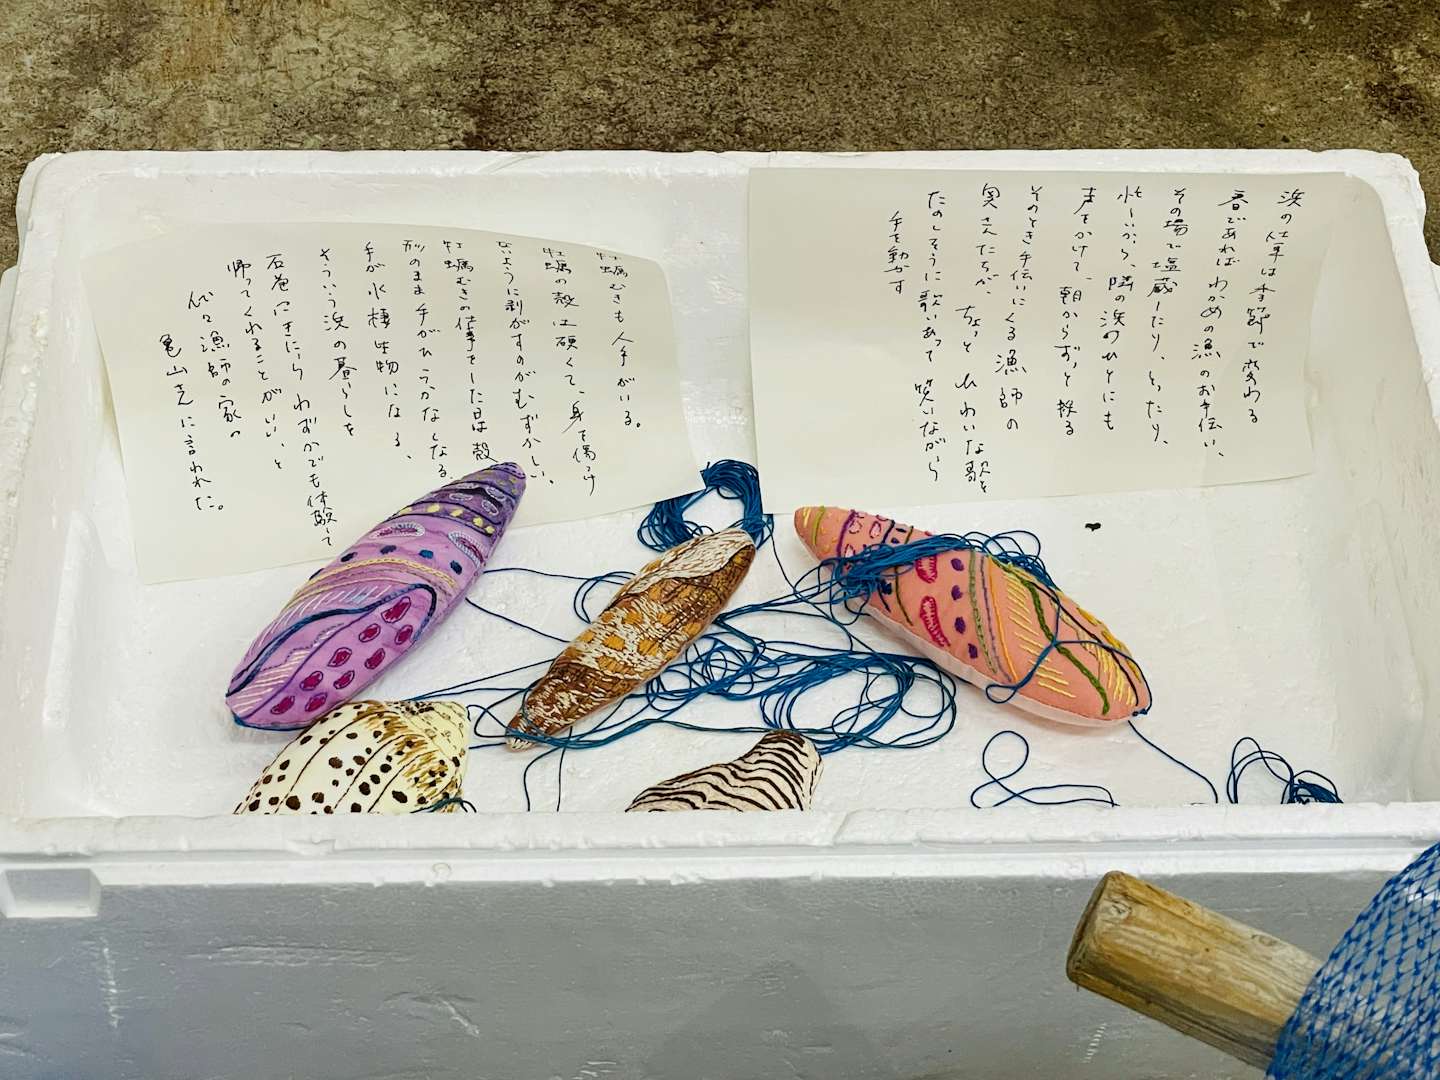 浜の仕事は季節で変わる
春であれば わかめの漁のお手伝い、
その場で塩蔵したり、とったり、
忙しいから、隣の浜のひとにも
声をかけて、朝からずっと採る
そのとき手伝いにくる漁師の
奥さんたちが、ちょっとひわいな歌を
たのしそうに歌いあって笑いながら
手を動かす
牡蠣むきも人手がいる。
牡蠣の殻は硬くて、身を傷つけ
ないように剥がすのがむずかしい、
牡蠣むきの仕事をした日は殻
形のまま手がひらかなくなる
手が水棲生物になる、
そういう浜の暮らしを
石巻にきたら わずかでも体験して
帰ってくれることがいい、と
代々漁師の家の
亀山さんに言われた。